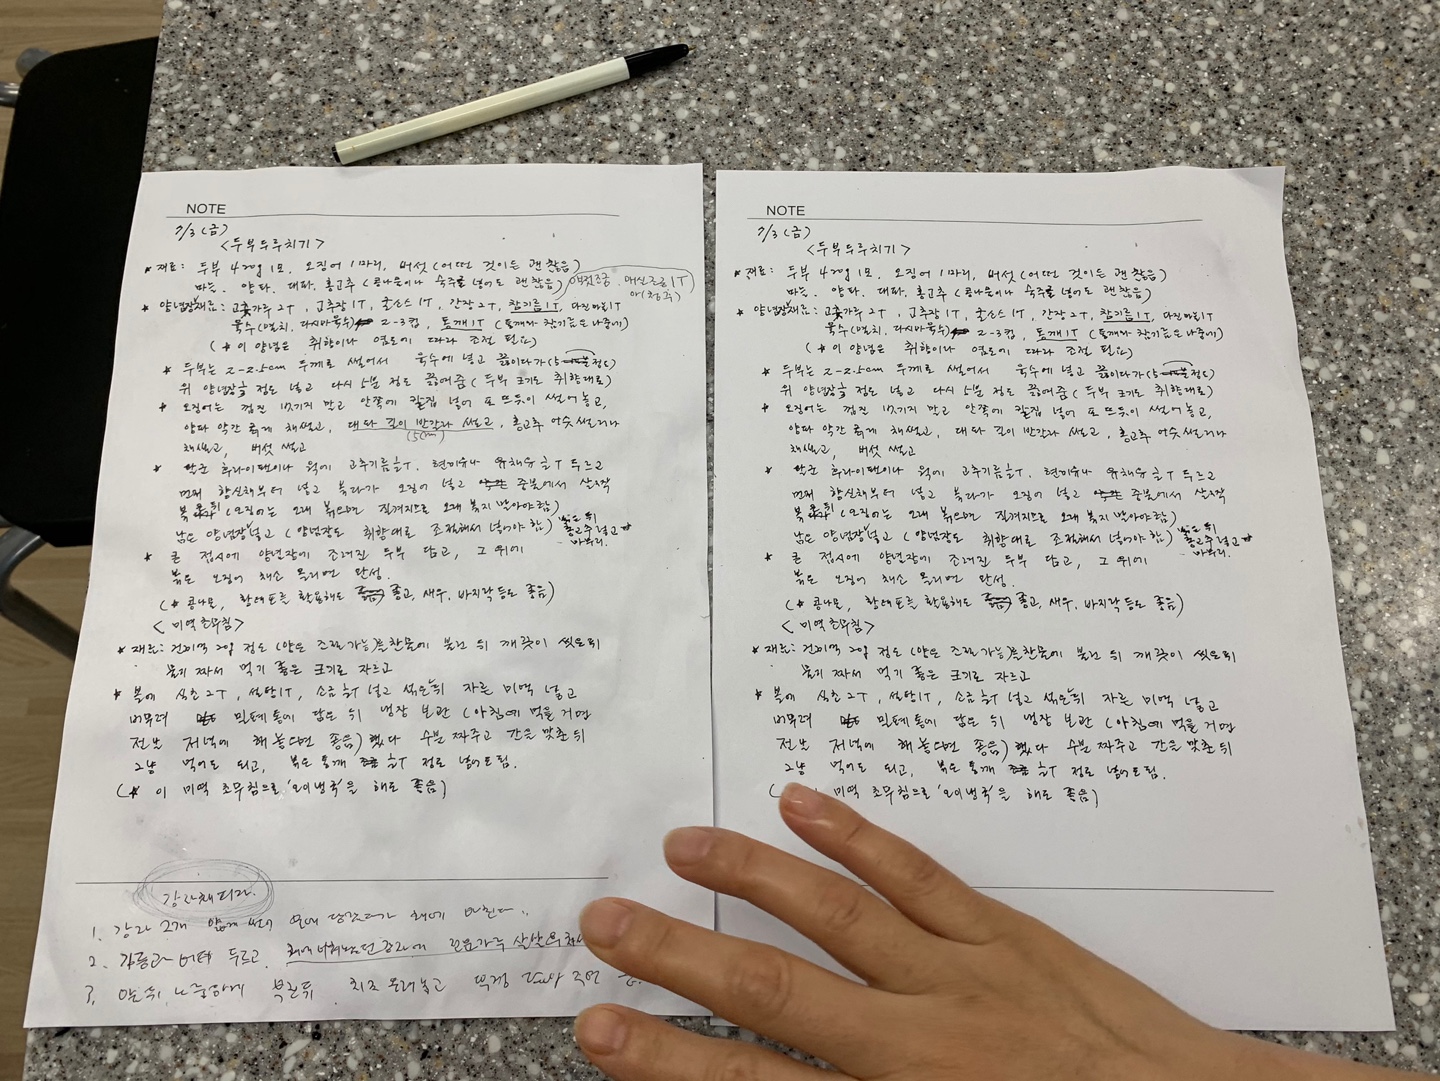 NOTE
7/3 (금)
<두부두루치기>
* 재료: 두부 420g 1모, 오징어 1마리, 버섯 (어떤 것이든 괜찮음)
마늘, 양파, 대파, 홍고추 (콩나물이나 숙주를 넣어도 괜찮음)
매실조금 1T
* 양념장재료: 고춧가루 2T, 고추장 1T, 굴소스 1T, 간장 2T, 참기름 1T, 다진마늘 1T
육수 (멸치, 다시마육수) 2-3컵, 통깨 1T (통깨와 참기름은 나중에)
(* 이 양념은 취향이나 염도에 따라 조절 필요)
* 두부는 2-2.5cm 두께로 썰어서 육수에 넣고 끓이다가 (5분정도)
위 양념장 정도 넣고 다시 5분 정도 끓여줌 (두부 크기도 취향대로)
* 오징어는 껍질 벗기지 말고 안쪽에 칼집 넣어 먹기 썰어놓고,
양파 약간 굵게 채썰고, 대파 길이 반갈라 썰고, 홍고추 어슷썰거나
(5cm)
채썰고, 버섯 썰고
* 달군 후라이팬이나 웍에 고추기름 T, 현미유나 유채유 T 두르고
먼저 향신채부터 넣고 볶다가 오징어 넣고 중불에서 살짝
볶은뒤 (오징어는 오래 볶으면 질겨지므로 오래 볶지 말아야함)
남은 양념장넣고 (양념장도 취향대로 조절해서 넣어야 함) 볶은 뒤
홍고추 넣고
마무리.
* 큰 접시에 양념장에 조려진 두부 담고, 그 위에
볶은 오징어 채소 올리면 완성.
(* 콩나물, 황태포를 활용해도 좋고, 새우, 바지락 등도 좋음)
<미역초무침>
* 재료: 건미역 20g 정도 (양은 조절가능)을 찬물에 불린 뒤 깨끗이 씻은뒤
물기 짜서 먹기 좋은 크기로 자르고
* 볼에 식초 2T, 설탕 1T, 소금 T 넣고 섞은뒤 자른 미역 넣고
버무려 밀폐통에 담은 뒤 냉장 보관 (아침에 먹을 거면
전날 저녁에 해놓으면 좋음) 했다 수분 짜주고 간을 맞춘 뒤
그냥 먹어도 되고, 볶은 통깨 T 정도 넣어도 됨.
(* 이 미역 초무침으로 '오이냉국'을 해도 좋음)
감자채피자.
1. 감자 2개 얇게 썰어 물에 담갔다가 채에 바친다.
2. 기름과 버터 두르고,
3. 치즈 올려놓고
NOTE
7/3 (금)
<두부두루치기>
* 재료: 두부 420g 1모, 오징어 1마리, 버섯 (어떤 것이든 괜찮음)
마늘, 양파, 대파, 홍고추 (콩나물이나 숙주를 넣어도 괜찮음)
양념장재료: 고춧가루 2T, 고추장 1T, 굴소스 1T, 간장 2T, 참기름 1T, 다진마늘 1T
육수 (멸치, 다시마육수) 2-3컵, 통깨 1T (통깨와 참기름은 나중에)
(* 이 양념은 취향이나 염도에 따라 조절 필요)
* 두부는 2-2.5cm 두께로 썰어서 육수에 넣고 끓이다가 (5분정도)
위 양념장 정도 넣고 다시 5분 정도 끓여줌 (두부 크기도 취향대로)
* 오징어는 껍질 벗기지 말고 안쪽에 칼집 넣어 썰어놓고,
양파 약간 굵게 채썰고, 대파 길이 반갈라 썰고, 홍고추 어슷썰거나
채썰고, 버섯 썰고
* 달군 후라이팬이나 웍에 고추기름 T, 현미유나 유채유 T 두르고
먼저 향신채부터 넣고 볶다가 오징어 넣고 중불에서 살짝
볶은뒤 (오징어는 오래 볶으면 질겨지므로 오래 볶지 말아야함)
남은 양념장넣고 (양념장도 취향대로 조절해서 넣어야 함) 볶은 뒤
홍고추 넣고
마무리.
* 큰 접시에 양념장에 조려진 두부 담고, 그 위에
볶은 오징어 채소 올리면 완성.
(* 콩나물, 황태포를 활용해도 좋고, 새우, 바지락 등도 좋음)
<미역초무침>
* 재료: 건미역 20g 정도 (양은 조절가능)을 찬물에 불린 뒤 깨끗이 씻은뒤
물기 짜서 먹기 좋은 크기로 자르고
* 볼에 식초 2T, 설탕 1T, 소금 T 넣고 섞은뒤 자른 미역 넣고
버무려 밀폐통에 담은 뒤 냉장 보관 (아침에 먹을 거면
전날 저녁에 해놓으면 좋음) 했다 수분 짜주고 간을 맞춘 뒤
그냥 먹어도 되고, 볶은 통깨 T 정도 넣어도 됨.
미역 초무침으로 '오이냉국'을 해도 좋음)